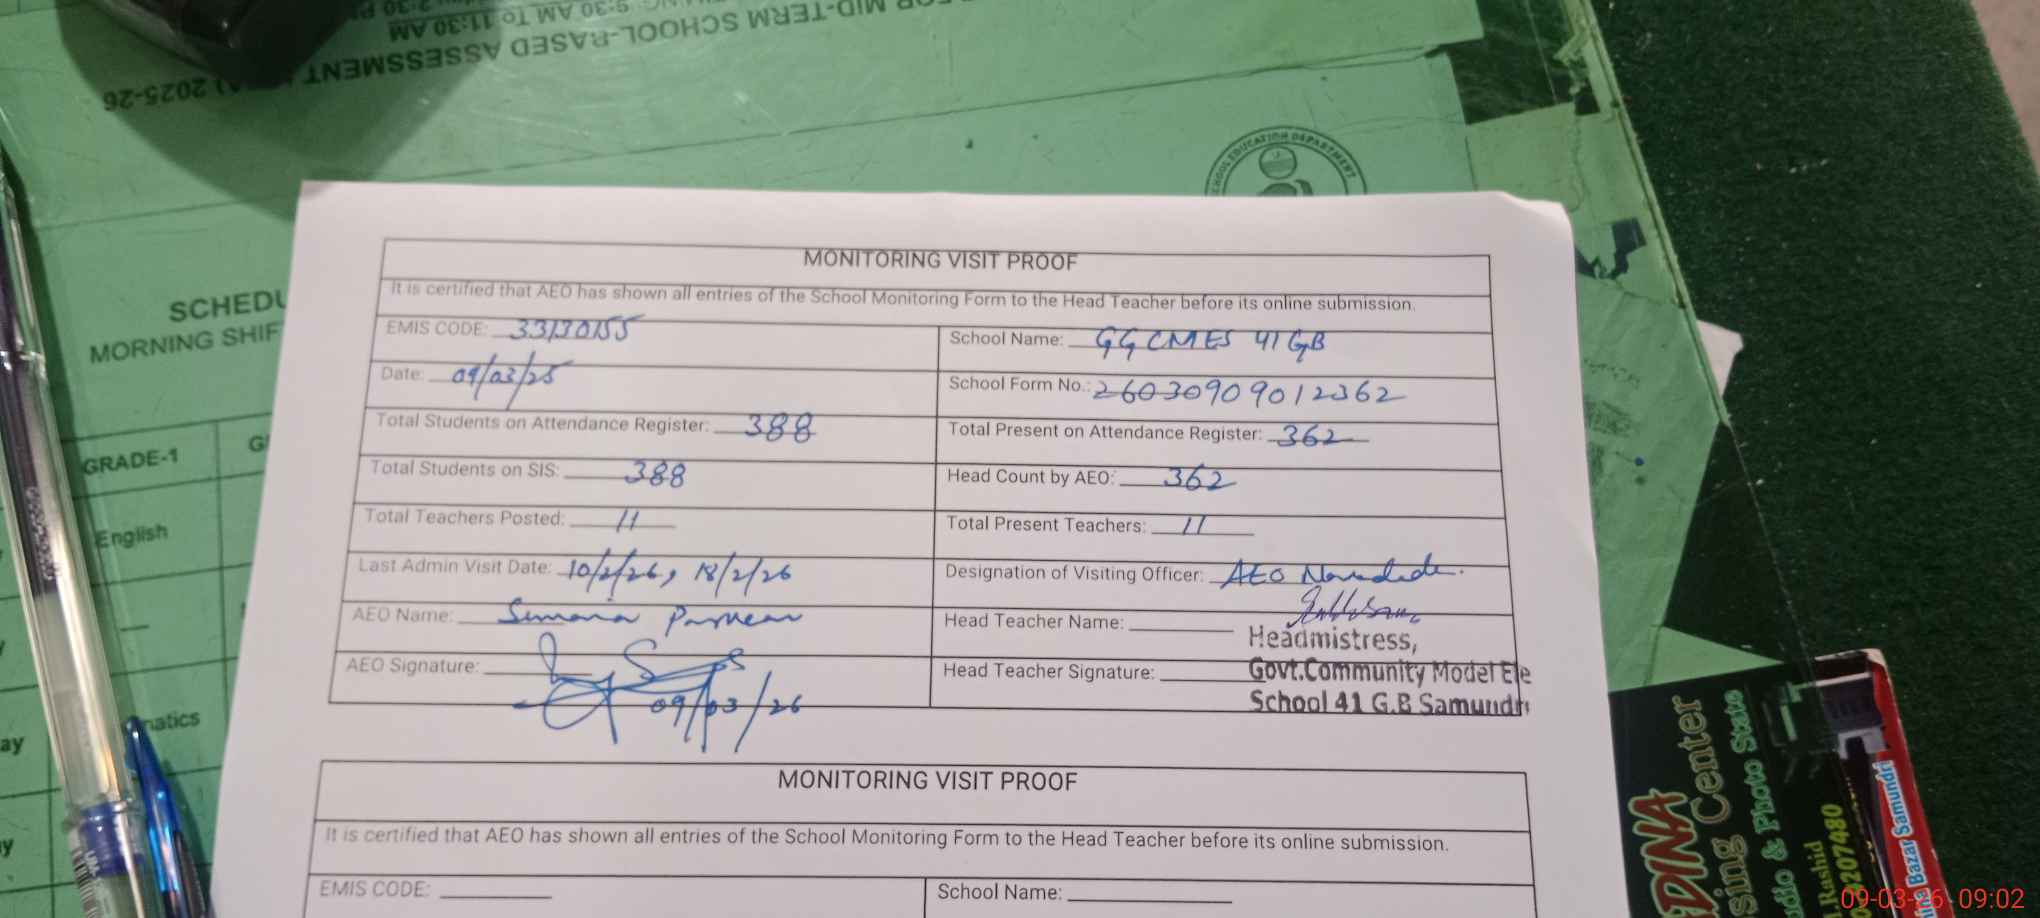 FOR MID-TERM SCHOOL-BASED ASSESSMENT 2025-26
9:30 AM To 11:30 AM
2:30
SCHOOL EDUCATION DEPARTMENT
MORNING SHIF
GRADE-1
English
MONITORING VISIT PROOF
It is certified that AEO has shown all entries of the School Monitoring Form to the Head Teacher before its online submission.
EMIS CODE: 33130155 School Name: GGCMES 41 GB
Date: 09/03/25 School Form No.: 26030909012362
Total Students on Attendance Register: 388 Total Present on Attendance Register: 362
Total Students on SIS: 388 Head Count by AEO: 362
Total Teachers Posted: 11 Total Present Teachers: 11
Last Admin Visit Date: 10/2/26, 18/2/26 Designation of Visiting Officer: AEO
AEO Name: Head Teacher Name:
Headmistress,
AEO Signature: 09/03/26 Head Teacher Signature:
Govt.Community Model Ele
School 41 G.B Samundri
MONITORING VISIT PROOF
It is certified that AEO has shown all entries of the School Monitoring Form to the Head Teacher before its online submission.
EMIS CODE: School Name:
DINA
sing Center
udio & Photo State
Rashid
9207480
Bazar Samundri
09-03-26 09:02